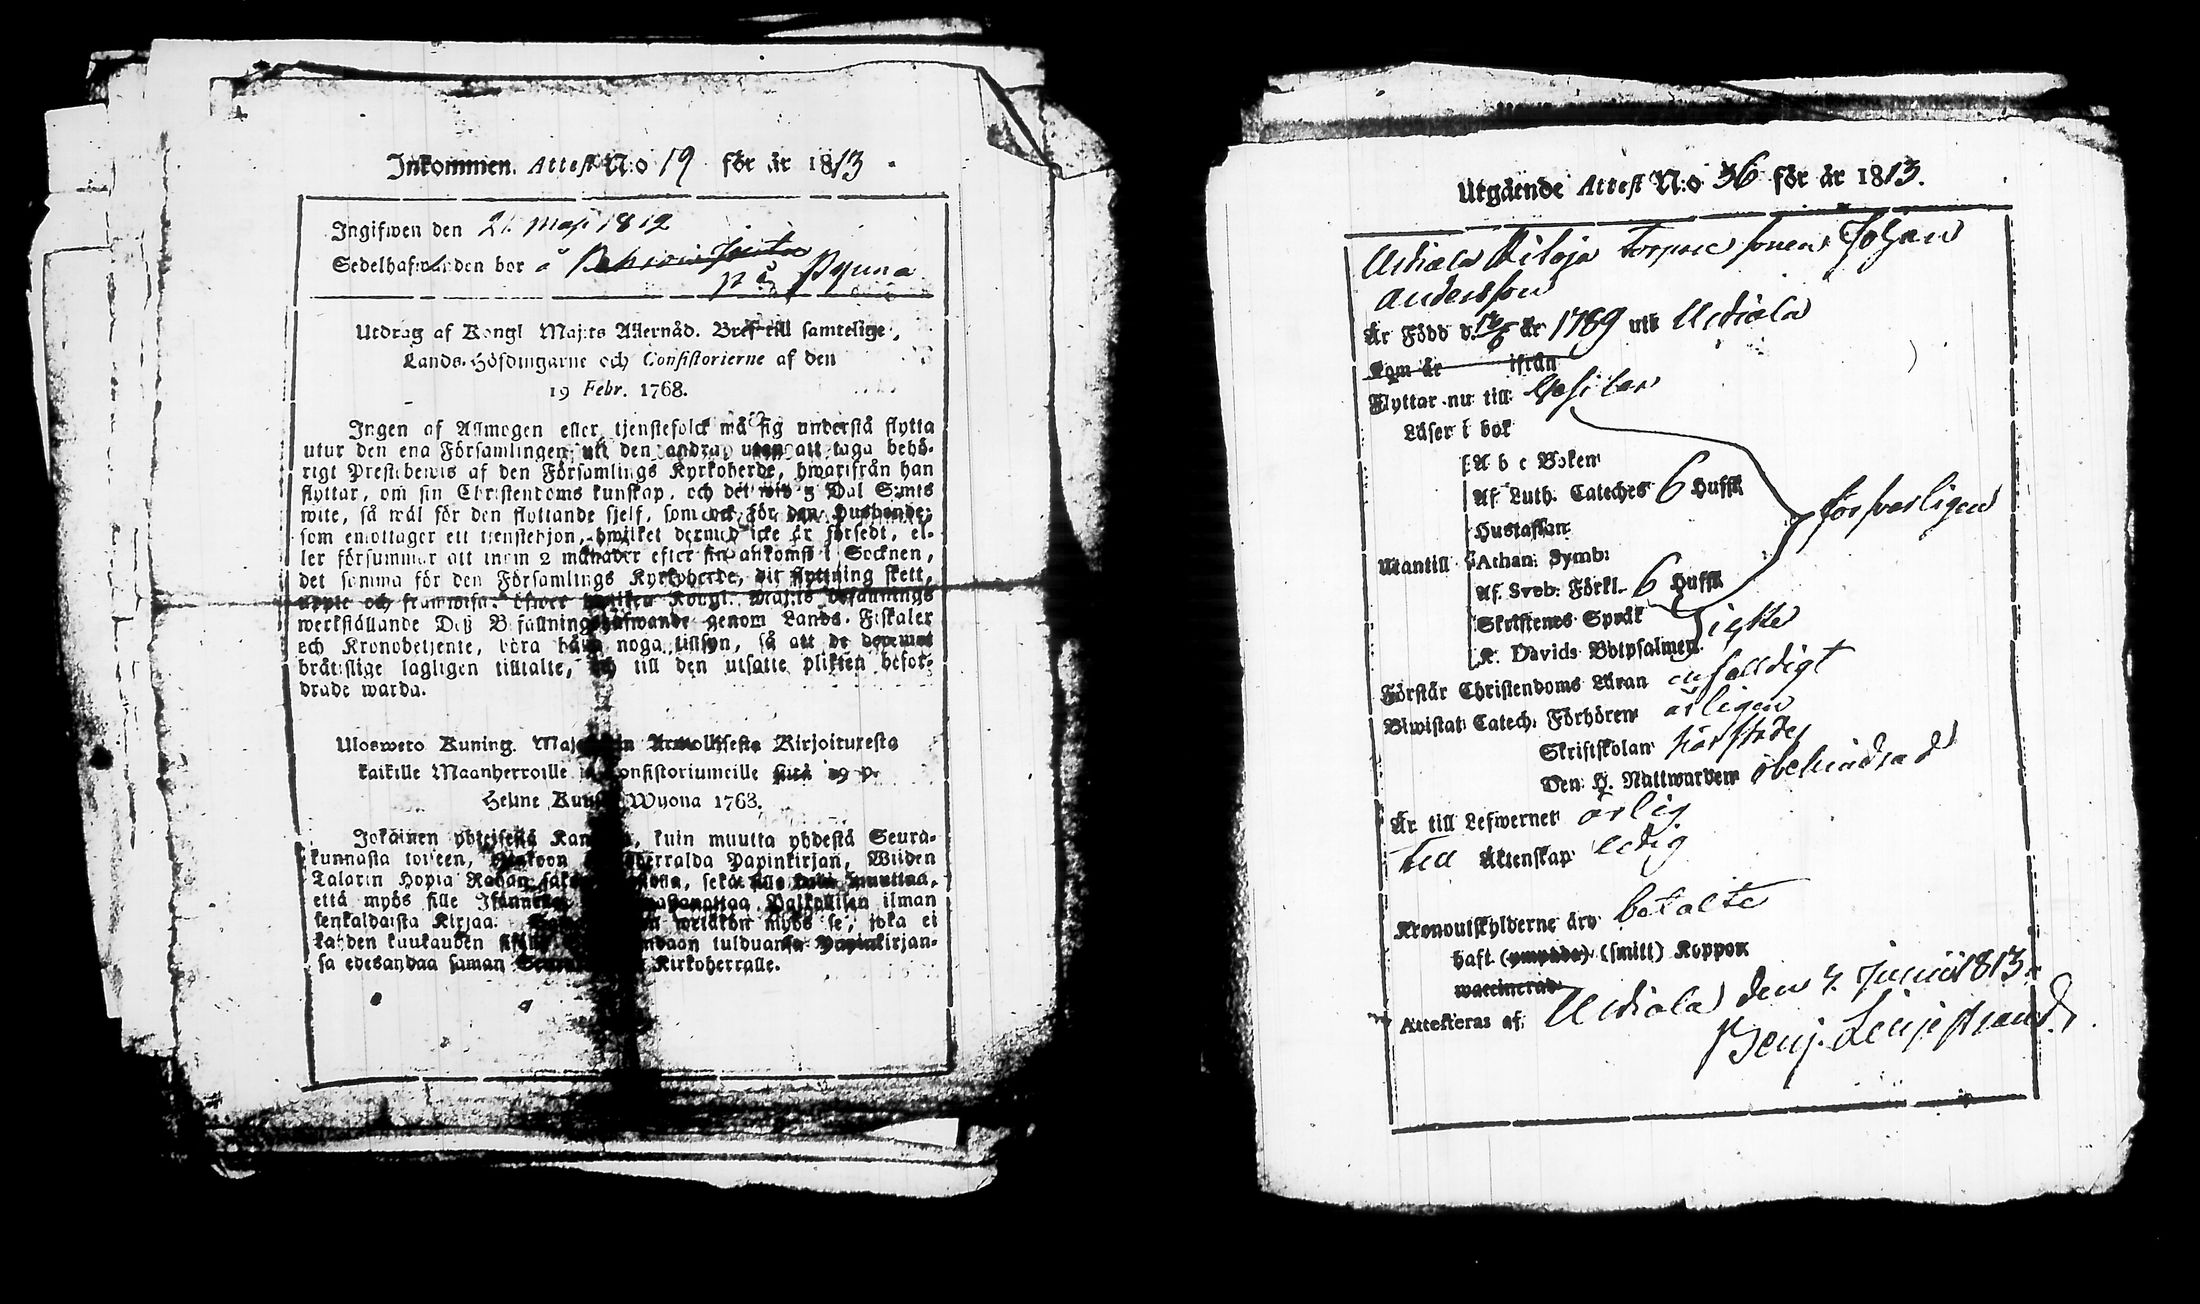 Inkommen. Attest N:o 19 för år 1813
Ingifwen den 21 Maji 1812
Sedelhafwanden bor å
på Pyuna
Utdrag af Kongl Maj:ts Allernåd. Bref till samtelige
Lands-Höfdingarne och Consistorierne af den
19 Febr. 1768.
Ingen af Allmogen eller tjenstefolck må sig understå flytta
utur den ena Församlingen uti den andra, utan att taga behö-
rigt Prestebewis af den Församlings Kyrkoherde, hwarifrån han
flyttar, om sin Christendoms kunskap, och det wid 5 Dal S:mts
wite, så wäl för den flyttande sjelf, som ock för den Husbonde,
som emottager ett tjenstehjon, hwilket dermed icke är försedt, el-
ler försummar att inom 2 månader efter sin ankomst i Socknen,
det samma för den Församlings Kyrkoherde, dit flyttning skett,
upte och framwisa: öfwer hwilken Kongl. Maj:ts
werkställande Deß Befallningshafwande genom Lands-Fiskaler
och Kronobetjente, böra hafwa noga tillsyn, så att de
brätslige lagligen tilltalte, och till den utsatte plikten befor-
drade warda.
Ulosweto Kuning. Maj Armollisesta Kirjoituresta
kaikille Maanherroille ja Consistoriumeille siitä 19 p.
Helme Kuusa Wuona 1768.
Jokainen yhteisestä Kansasta, kuin muutta yhdestä Seura-
kunnasta toiseen, ottakoon Kirkoherralda Papinkirjan, Wiiden
Talarin Hopia Rahan sakon, sekä sille kuin muuttaa,
että myös sille Isännälle Palkollisen ilman
senkaldaista Kirjaa. wetäkön myös se, joka ei
kahden kuukauden sisälle tulduansa Papinkirjan-
sa edesandaa saman Seurakunnan Kirkoherralle.
Utgående Attest N:o 36 för år 1813.
Urdiala Torpare sonen Johan
Andersson
Är Född d. 12/6 år 1789 uti Urdiala
Kom år ifrån
Flyttar nu till
Läser i bok
A b c Boken
Af Luth. Cateches 6 Huffst
Hustaflan
Utantill Athan: Symb:
Af Sveb: Förkl. 6 Huffst
försvarligen
Skriftenes Språk
K. Davids Botpsalmer. icke
Förstår Christendoms Läran enfalldigt
Biwistat Catech: Förhören årligen
Skriftskolan
Den H. Nattwarden obehindrad
Är till Lefwernet ärlig
Till Äktenskap ledig
Kronoutskylderne äro betalte
haft (ympade) (smitt) Koppor
waccinerad
Attesteras af: Urdiala den 7. Junii 1813.
Benj. Liljestrand.